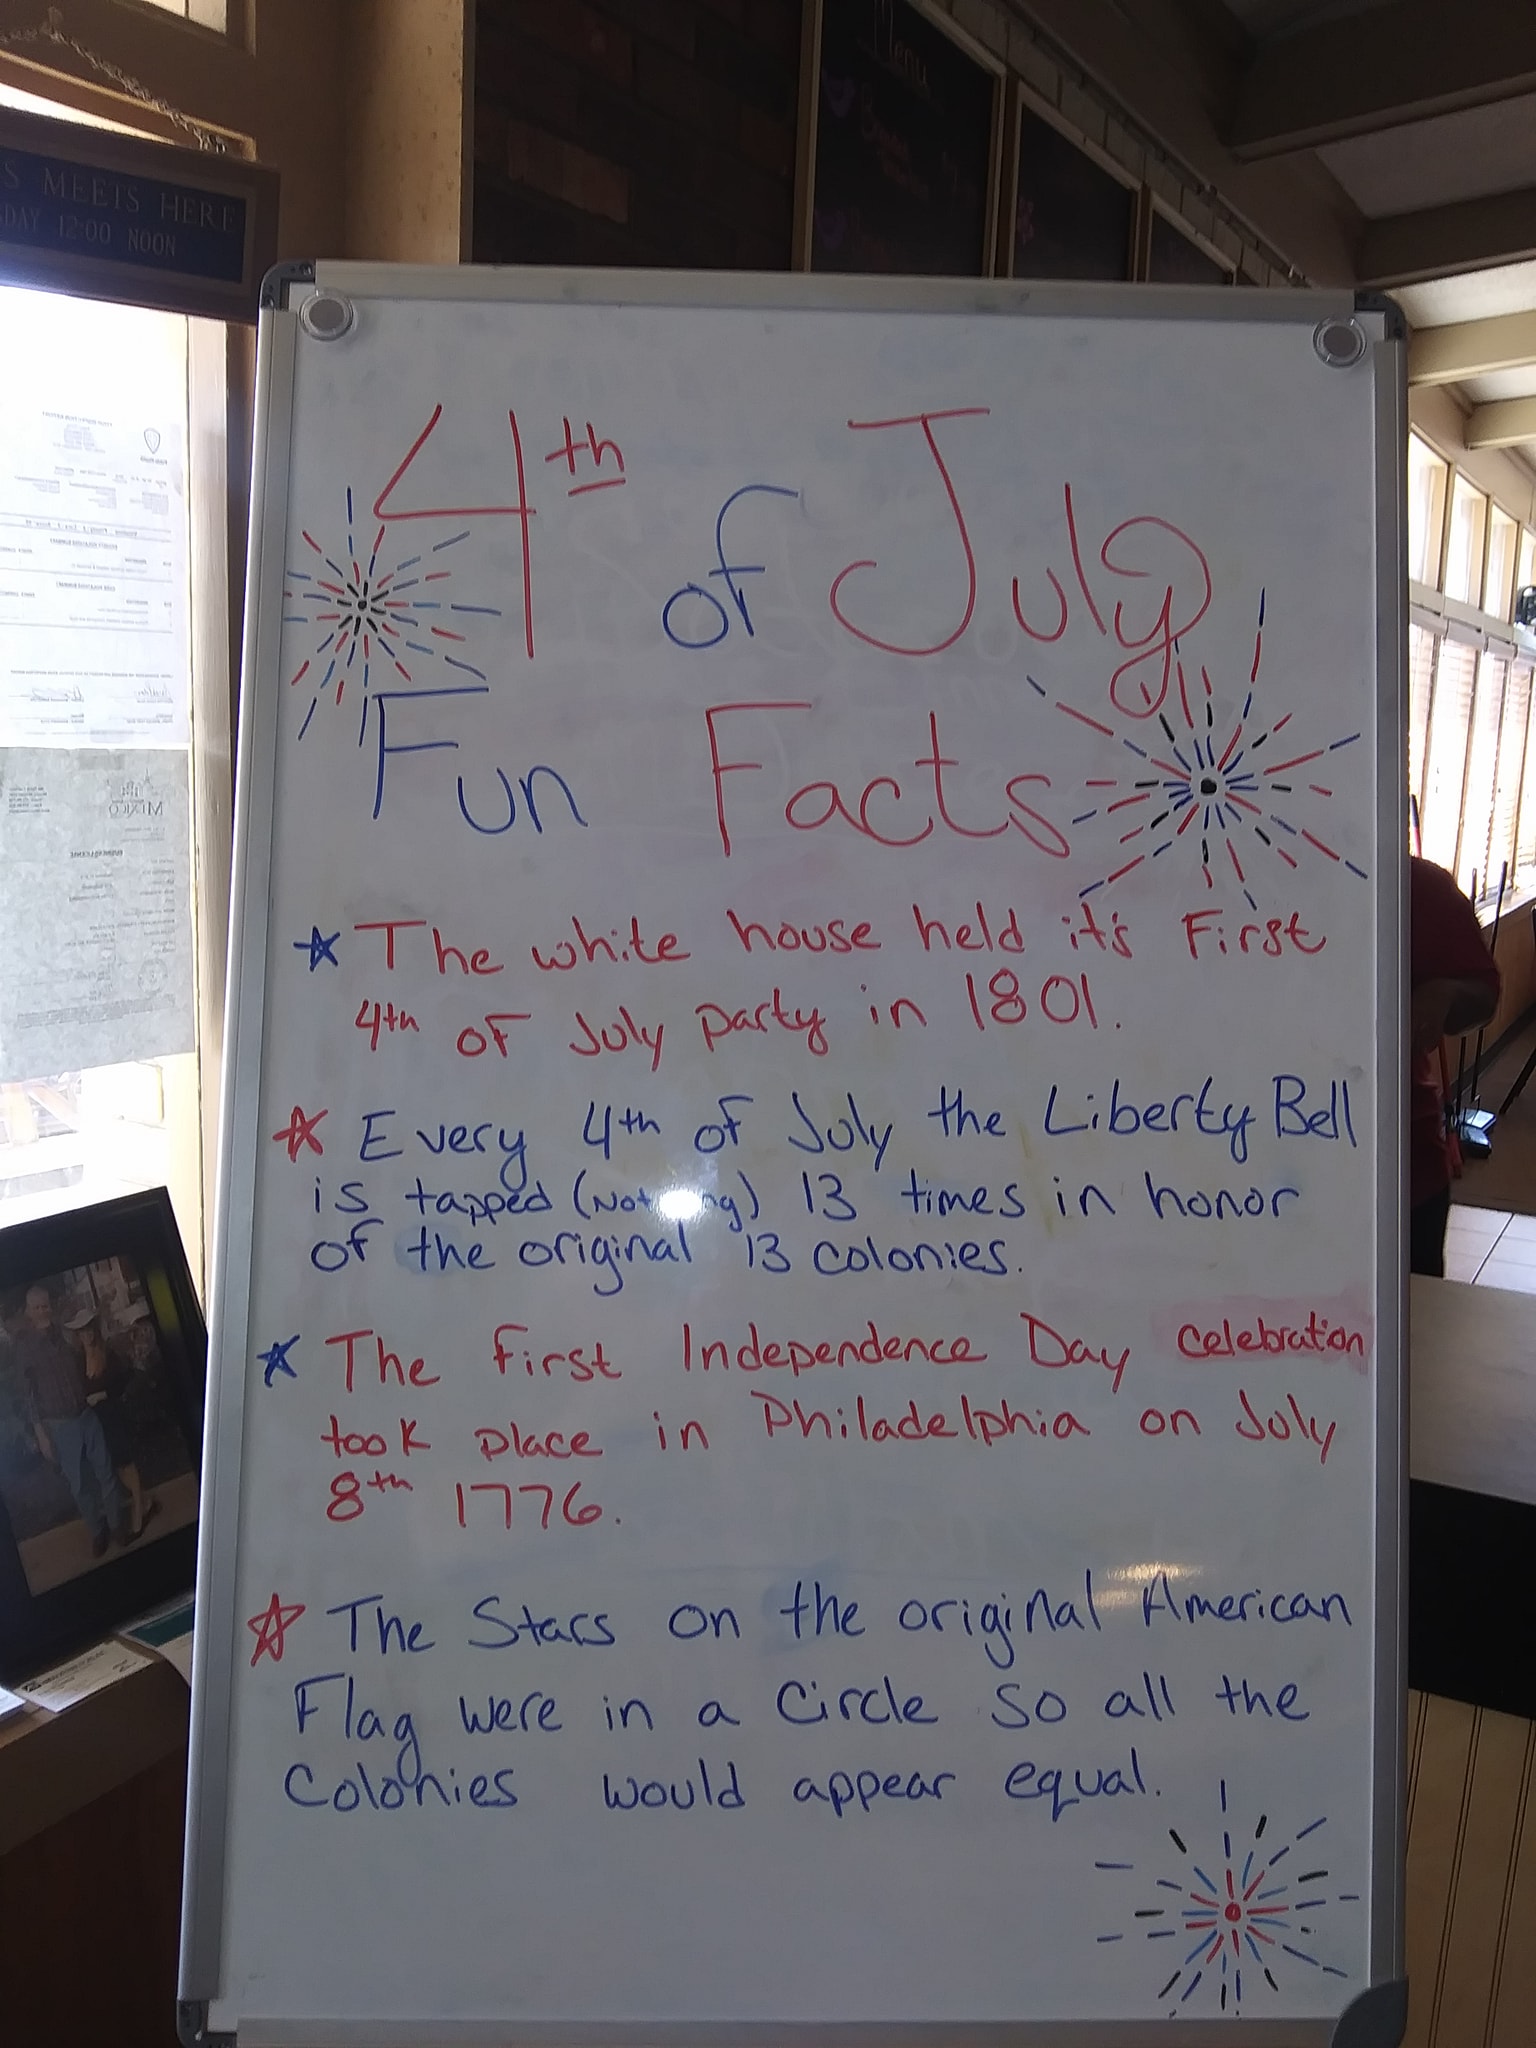 S MEETS HERE
SDAY 12:00 NOON
Menu
4th of July
Fun Facts
The white house held it's First
4th of July party in 1801.
Every 4th of July the Liberty Bell
is tapped (Not) 13 times in honor
of the original 13 colonies.
The first Independence Day celebration
took place in Philadelphia on July
8th 1776.
The Stars on the original American
Flag were in a Circle so all the
Colonies would appear equal.
MEXICO